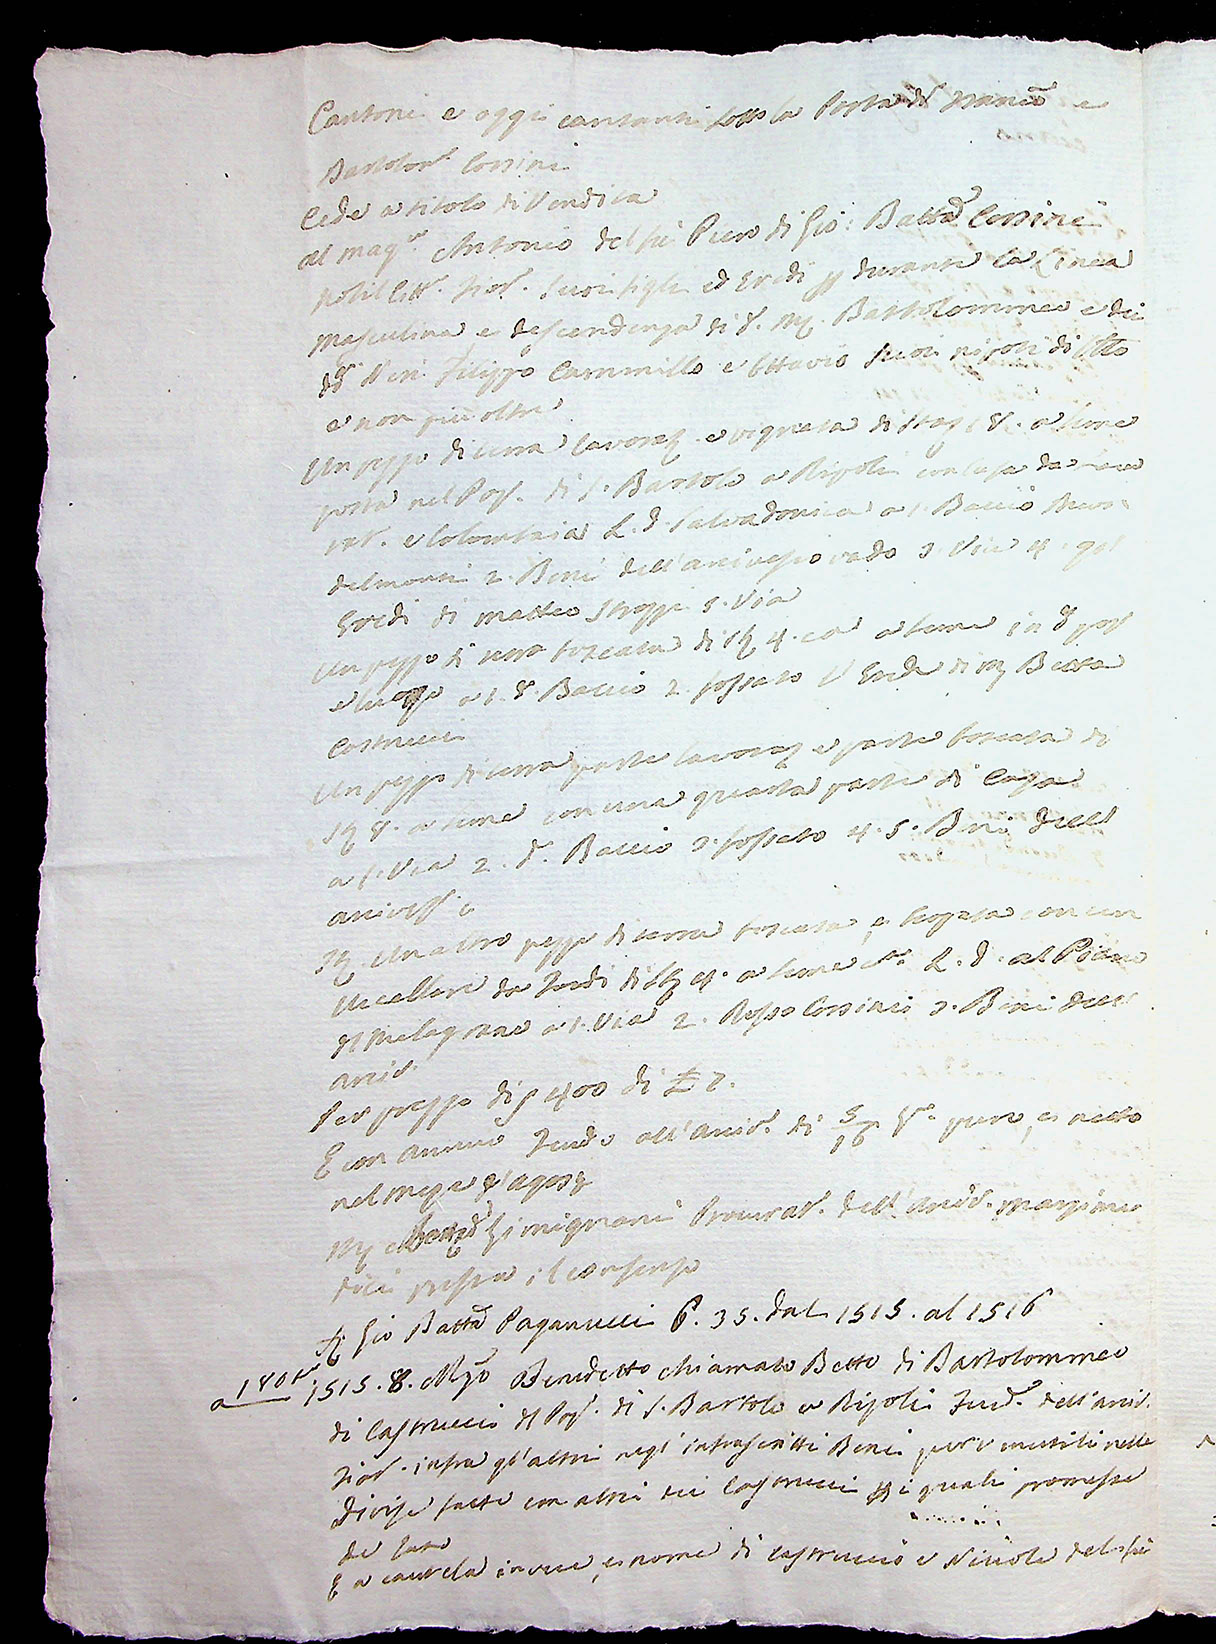 Cantoni e oggi cantanti sotto la Porta di Franc.o e
Bartolom. Corsini
Cede a titolo di Vendita
al mag.co Antonio del fù Piero di Gio: Batta Corsini
nobil Citt. Fior. suoi figli ed Eredi durante la Linea
masculina e descendenza di d. M. Bartolommeo e dei
dd. Neri Filippo Cammillo e Ottavio suoi nipoti di
e non più oltre
Un pezzo di terra lavorat. e vignata di Stag. 8. a seme
posta nel Pop. di S. Bartolo a Ripoli con casa da
e Colombaia L. d. Salvadonica a 1. Baccio
2. Beni dell'arcivescovado 3. Via 4. gl'
Eredi di Matteo Strozzi 5. Via
Un pezzo di terra boscata di St. 4. c.a a seme in d. pop.
e luogo a 1. d. Baccio 2. fossato Erede di M. Betta
Castrucci
Un pezzo di terra parte lavorat. e parte boscata di
St. 8. a seme con una quarta parte di Casa
a 1. Via 2. d. Baccio 3. fossato 4. 5. Beni dell'
arcivesc.o
It. Un altro pezzo di terra boscata, e con un
Uccellare da Tordi di St. 4. a seme L. d. al Piano
del Melagrano a 1. Via 2. Rosso Corsini 3. Beni dell'
arciv.
Per prezzo di f. 400 di £ 7.
E con annuo Feudo all'Arciv. di 5/16 puro, e netto
nel mese d'agosto
M. Gimignani Procurat. dell' Arciv.
presta il consenso
Gio Batta Paganucci P. 35. dal 1515. al 1516
a 1401 1515. 8. Mag.o Benedetto chiamato Betto di Bartolommeo
di Castruccio del Pop. di S. Bartolo a Ripoli Feud. dell'arciv.
Fior. infra gl'altri negl'infrascritti Beni nelle
divise fatte con altri dei Castrucci i quali promesse
de Rato
E a cautela in vece, e nome di Castruccio e Niccolò del fù